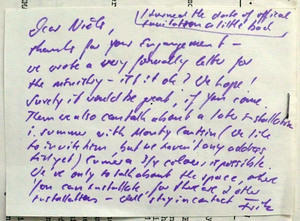 I turned the date of official
invitation a little back
Dear Niels,
thanks for your Engagement –
we wrote a very formally letter for
the ministry – if it ok? We hope!
Surely it would be great, if you come.
Then we also can talk about a late installation
i. summer with Monty Cantsin (We like
to invite him but we haven't any address
first yet) Cumera 3/4 colours, is possible
We've only to talk about the space, where
You can installate, for there are 2 other
installations – we'll stay in contact